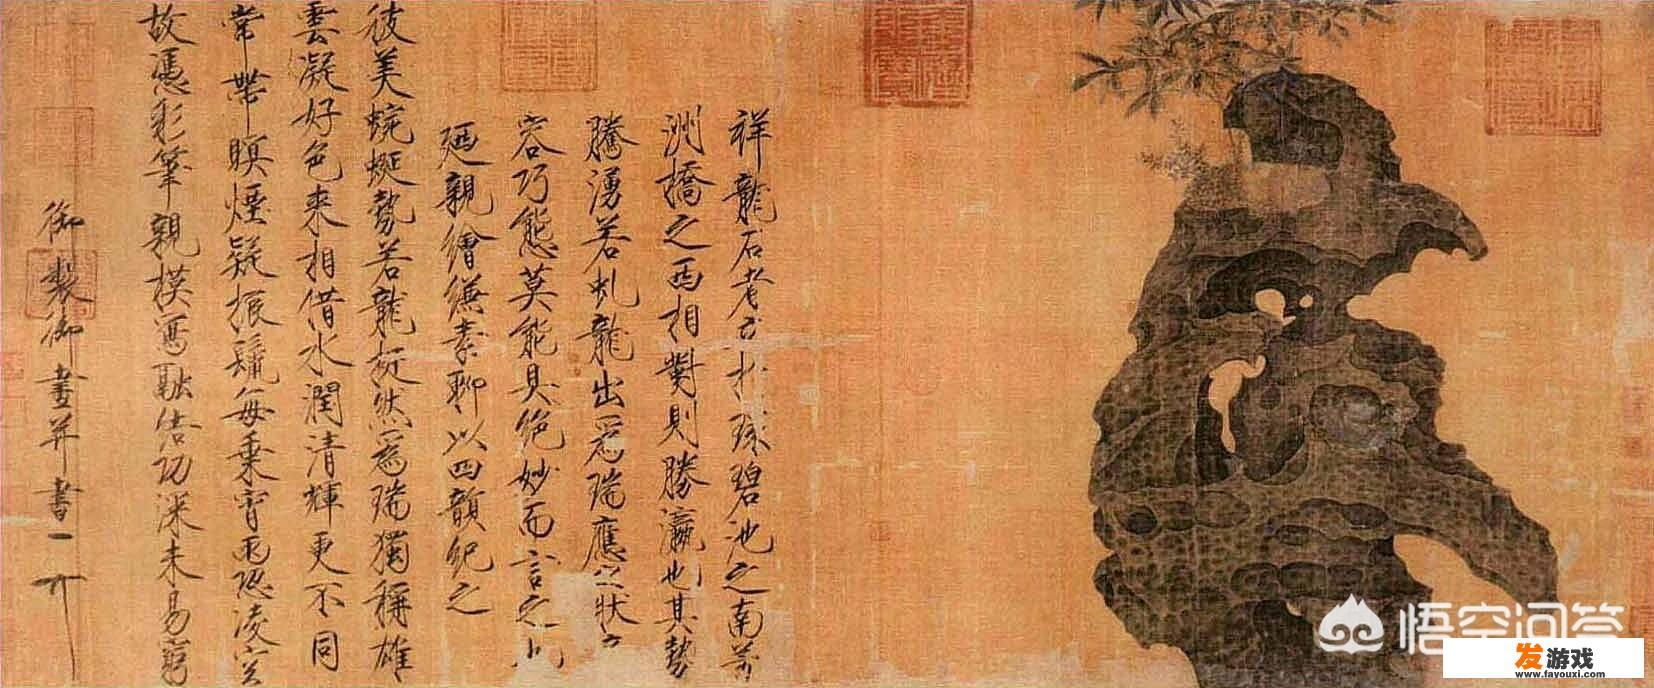 祥龍石者立於環碧池之南芳
洲橋之西相對則勝瀛也其勢
騰湧若虬龍出爲瑞應之狀奇
容巧態莫能具絶妙而言之也
廼親繪縑素聊以四韻紀之
彼美蜿蜒勢若龍挺然爲瑞獨稱雄
雲凝好色來相借水潤清輝更不同
常帶暝煙疑振鬣每乘宵雨恐凌空
故憑彩筆親模寫融結功深未易窮
御製御畫并書
悟空问答
发游戏
www.fayouxi.com